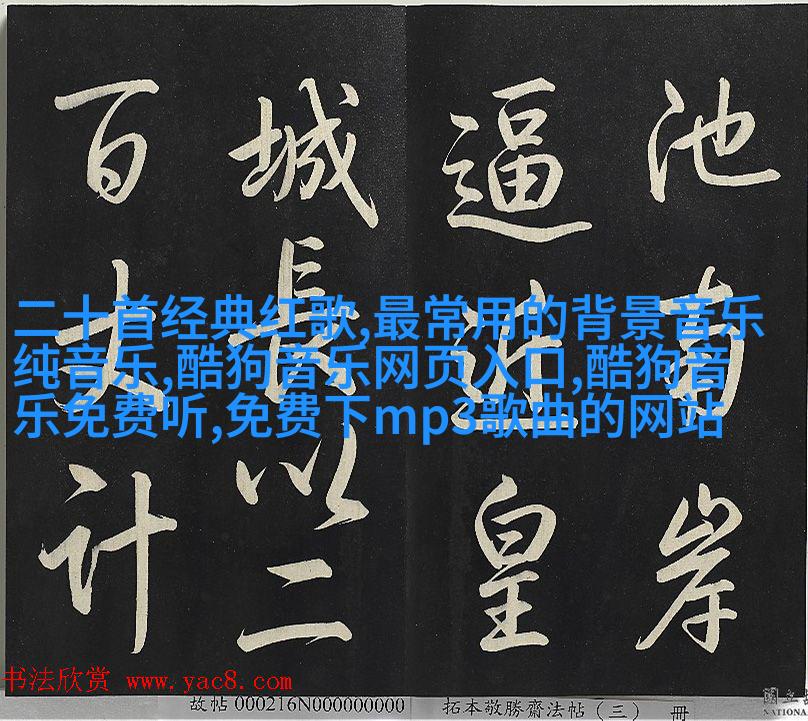 池南岸
逼近皇
城長以二
百丈計
二十首经典红歌,最常用的背景音乐
纯音乐,酷狗音乐网页入口,酷狗音
乐免费听,免费下mp3歌曲的网站
书法欣赏 www.yac8.com
故帖 000216N000000000 拓本敬勝齋法帖（三） 冊
國立
NATIONA